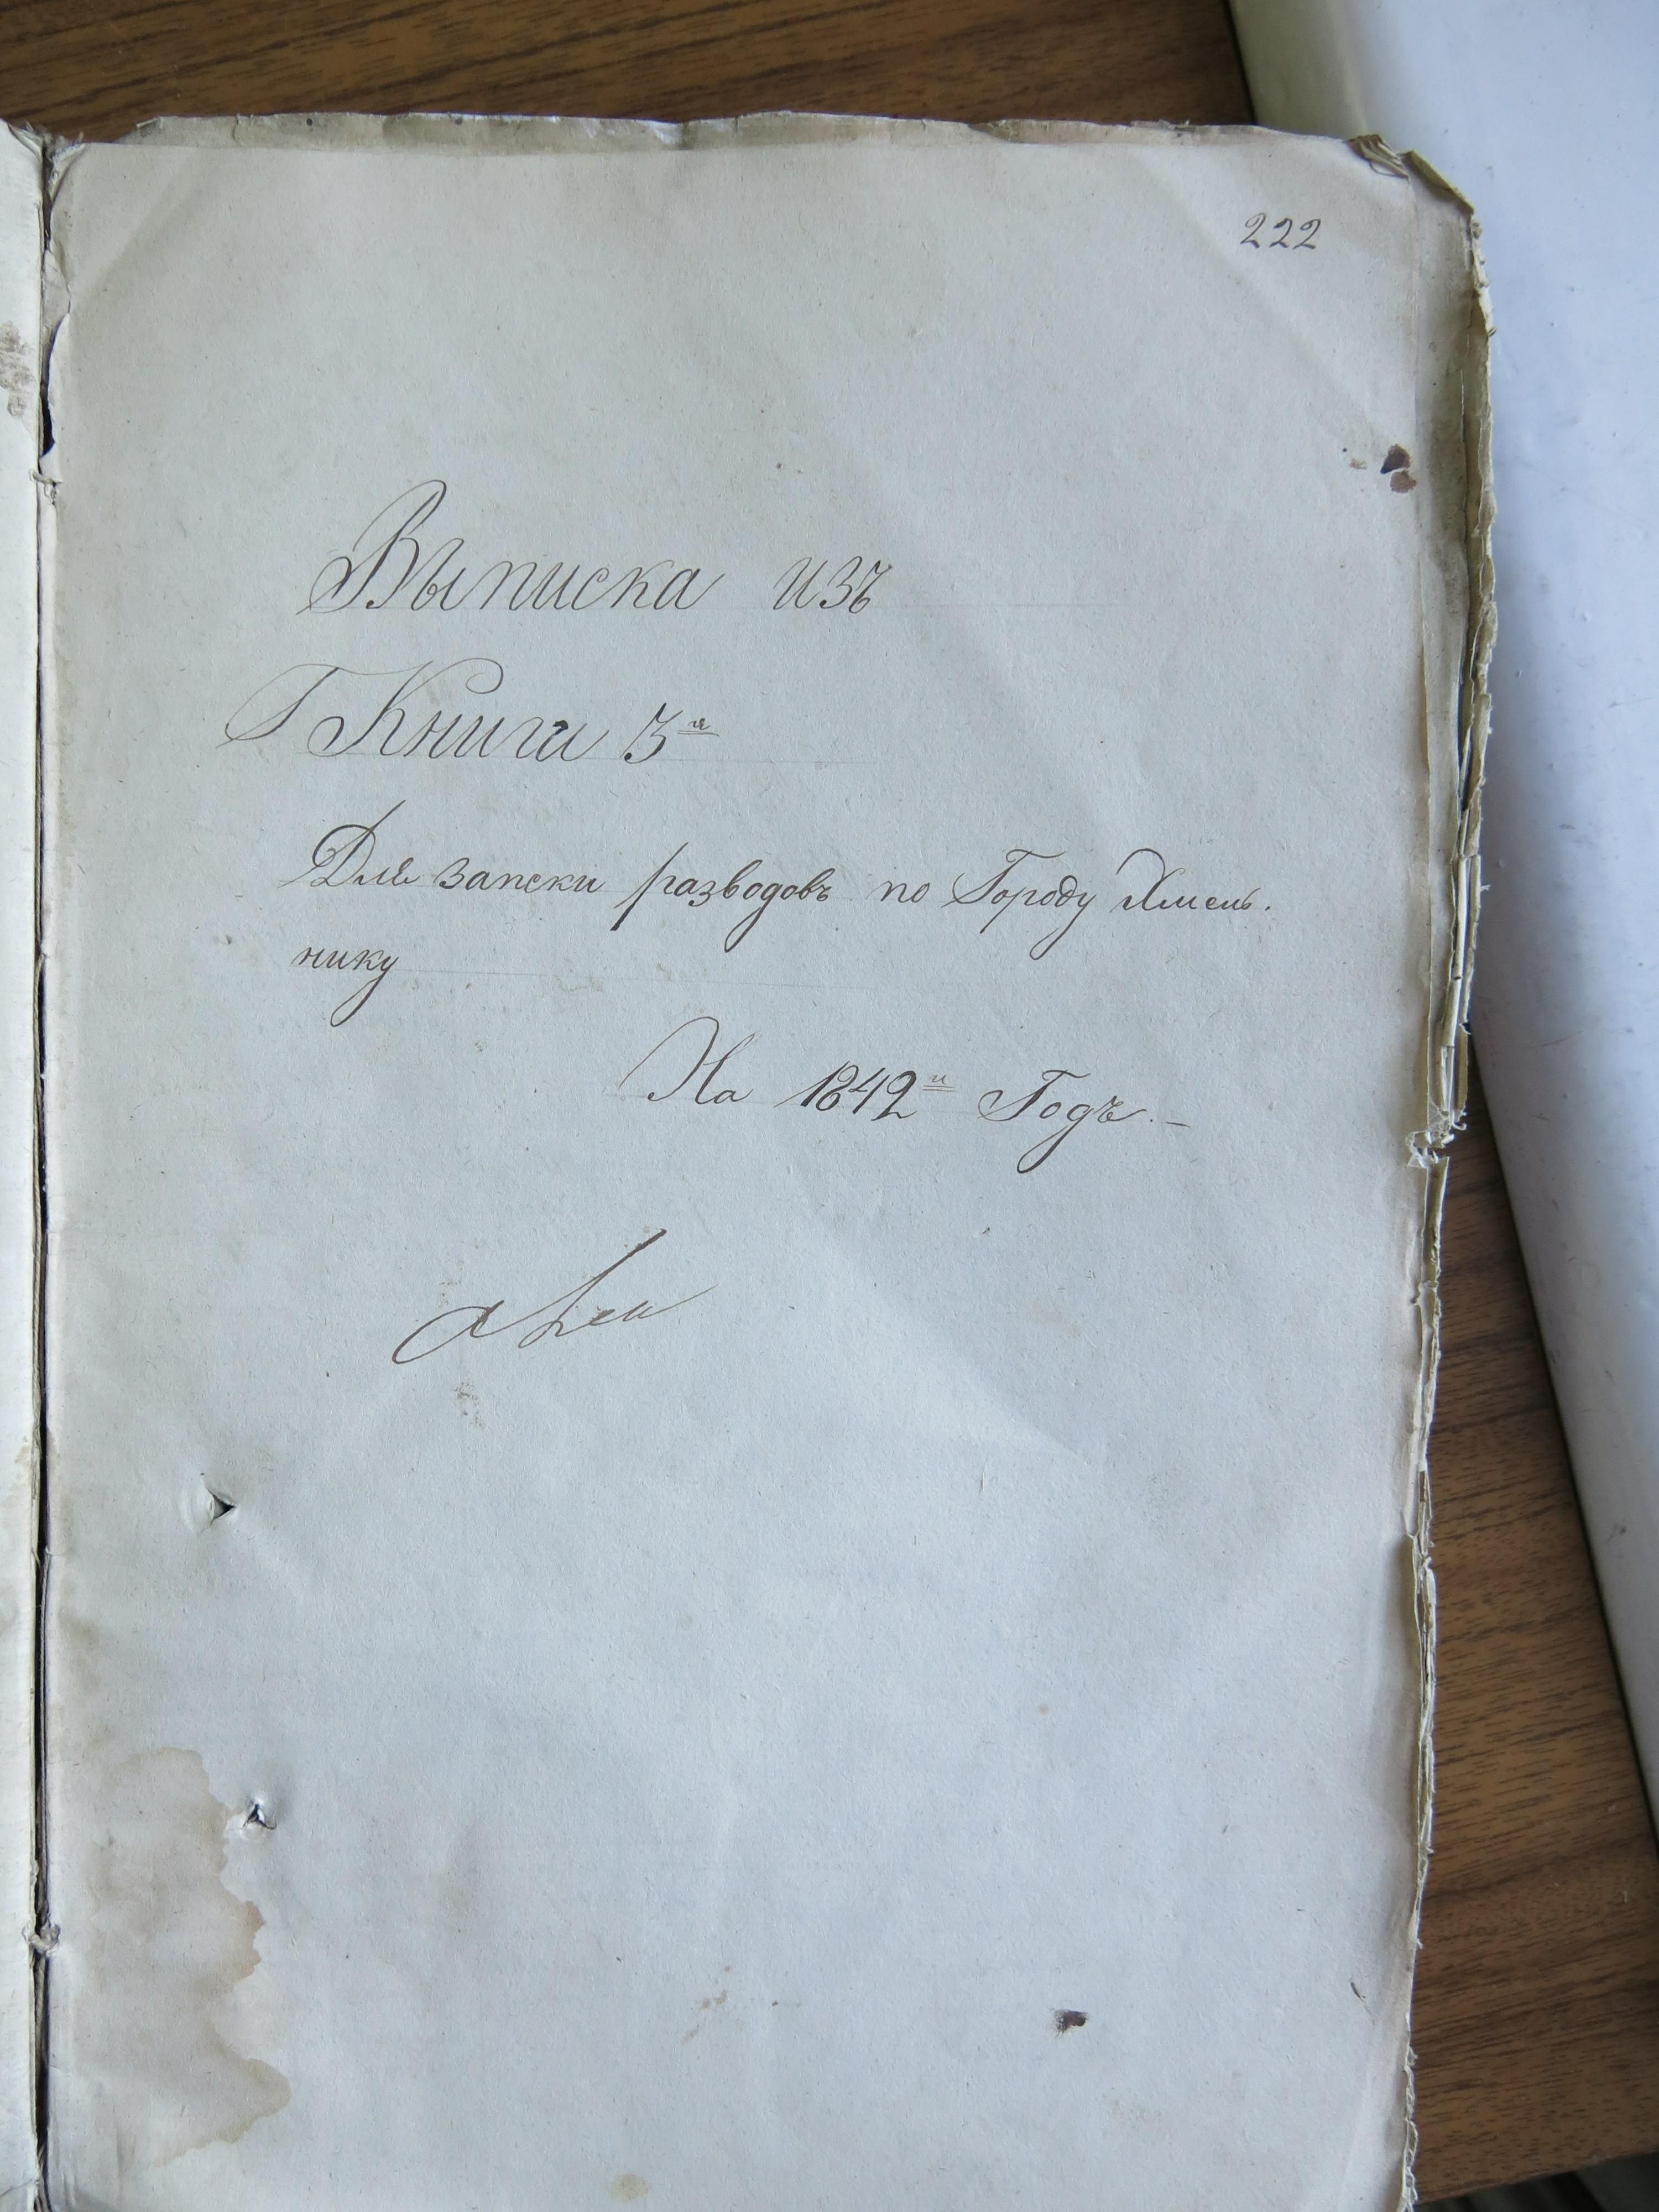 222
Выписка изъ
Книги 3я
Для запски разводовъ по Городу Хмель.
нику
На 1842й Годъ. –